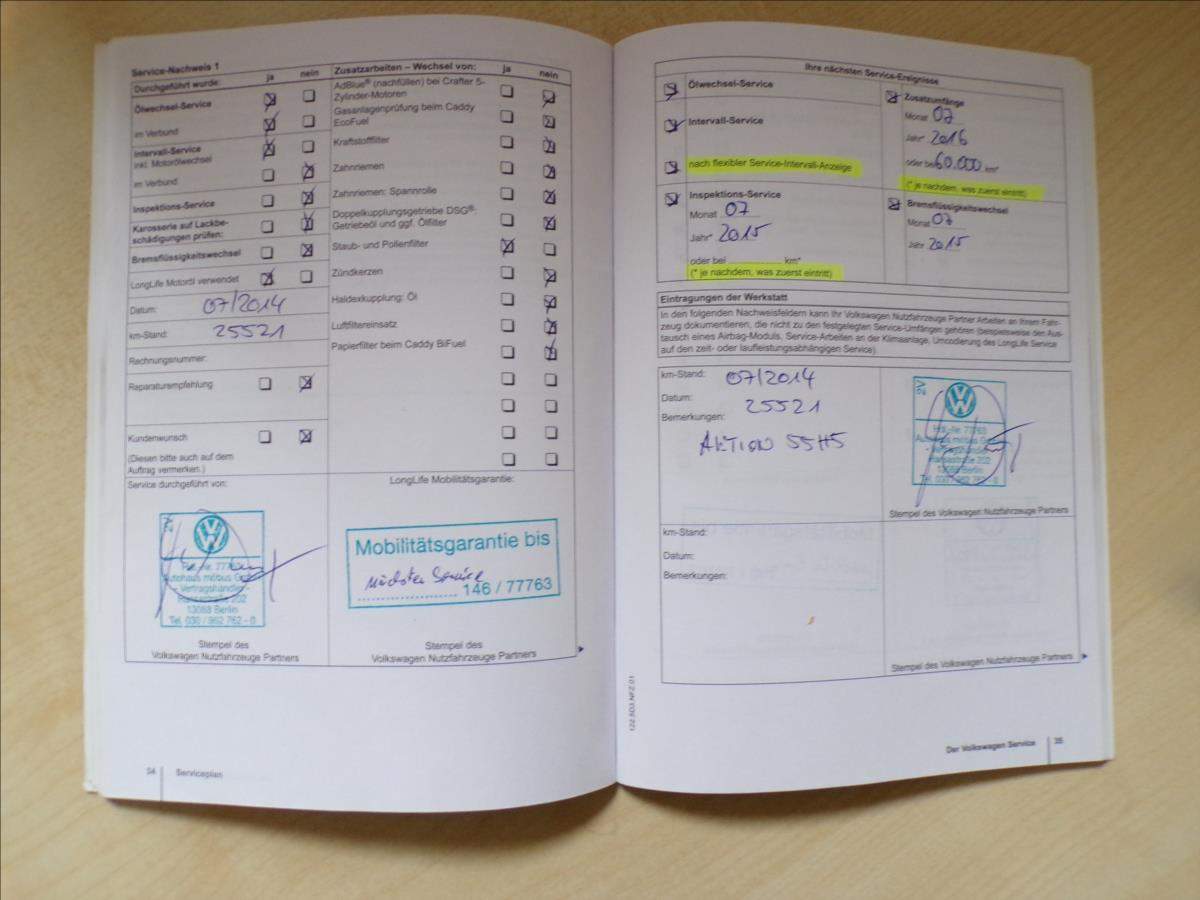 Service-Nachweis 1
Durchgeführt wurde: ja nein
Ölwechsel-Service
im Verbund
Intervall-Service
inkl. Motorölwechsel
im Verbund
Inspektions-Service
Karosserie auf Lackbe-
schädigungen prüfen:
Bremsflüssigkeitswechsel
LongLife Motoröl verwendet
Datum: 07/2014
km-Stand: 25521
Rechnungsnummer:
Reparaturempfehlung
Kundenwunsch
(Diesen bitte auch auf dem
Auftrag vermerken.)
Service durchgeführt von:
Autohaus möbus
- Vertragshändler -
Hansastraße 202
13088 Berlin
Tel. 030 / 962 762 - 0
Stempel des
Volkswagen Nutzfahrzeuge Partners
Zusatzarbeiten – Wechsel von: ja nein
AdBlue® (nachfüllen) bei Crafter 5-
Zylinder-Motoren
Gasanlagenprüfung beim Caddy
EcoFuel
Kraftstofffilter
Zahnriemen
Zahnriemen: Spannrolle
Doppelkupplungsgetriebe DSG®:
Getriebeöl und ggf. Ölfilter
Staub- und Pollenfilter
Zündkerzen
Haldexkupplung: Öl
Luftfiltereinsatz
Papierfilter beim Caddy BiFuel
LongLife Mobilitätsgarantie:
Mobilitätsgarantie bis
nächsten Service
146 / 77763
Stempel des
Volkswagen Nutzfahrzeuge Partners
34 Serviceplan
Ihre nächsten Service-Ereignisse
Ölwechsel-Service
Intervall-Service
nach flexibler Service-Intervall-Anzeige
Inspektions-Service
Monat 07
Jahr* 2015
oder bei km*
(* je nachdem, was zuerst eintritt)
Zusatzumfänge
Monat 07
Jahr* 2016
oder bei 60.000 km*
(* je nachdem, was zuerst eintritt)
Bremsflüssigkeitswechsel
Monat 07
Jahr 2015
Eintragungen der Werkstatt
In den folgenden Nachweisfeldern kann Ihr Volkswagen Nutzfahrzeuge Partner Arbeiten an Ihrem Fahr-
zeug dokumentieren, die nicht zu den festgelegten Service-Umfängen gehören (beispielsweise den Aus-
tausch eines Airbag-Moduls, Service-Arbeiten an der Klimaanlage, Umcodierung des LongLife Service
auf den zeit- oder laufleistungsabhängigen Service).
km-Stand: 07/2014
Datum: 25521
Bemerkungen:
AKTION 55H5
Hdl.-Nr. 77763
Autohaus möbus
- Vertragshändler
Hansastraße 202
13088 Berlin
Tel. 030 / 962 762 - 0
Stempel des Volkswagen Nutzfahrzeuge Partners
km-Stand:
Datum:
Bemerkungen:
Stempel des Volkswagen Nutzfahrzeuge Partners
122.5D3.NFZ.01
Der Volkswagen Service 35